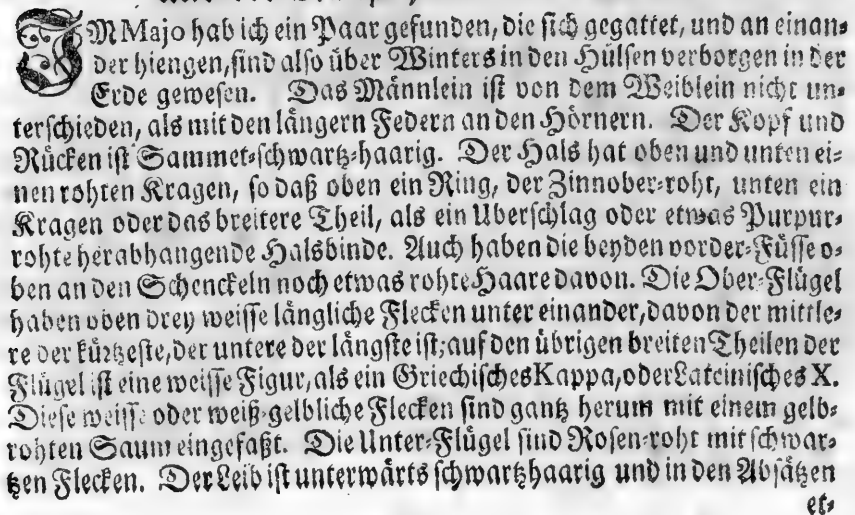 IM Majo hab ich ein Paar gefunden, die sich gegattet, und an einan-
der hiengen, sind also über Winters in den Hülsen verborgen in der
Erde gewesen. Das Männlein ist von dem Weiblein nicht un-
terschieden, als mit den längern Federn an den Hörnern. Der Kopf und
Rücken ist Sammet-schwartz-haarig. Der Hals hat oben und unten ei-
nen rohten Kragen, so daß oben ein Ring, der Zinnober-roht, unten ein
Kragen oder das breitere Theil, als ein Uberschlag oder etwas Purpur-
rohte herabhangende Halsbinde. Auch haben die beyden vorder-Füsse o-
ben an den Schenckeln noch etwas rohte Haare davon. Die Ober-Flügel
haben oben drey weisse längliche Flecken unter einander, davon der mittle-
re der kürtzeste, der untere der längste ist; auf den übrigen breiten Theilen der
Flügel ist eine weisse Figur, als ein Griechisches Kappa, oder Lateinisches X.
Diese weisse oder weiß-gelbliche Flecken sind gantz herum mit einem gelb-
rohten Saum eingefaßt. Die Unter-Flügel sind Rosen-roht mit schwar-
tzen Flecken. Der Leib ist unterwärts schwartzhaarig und in den Absätzen
et-